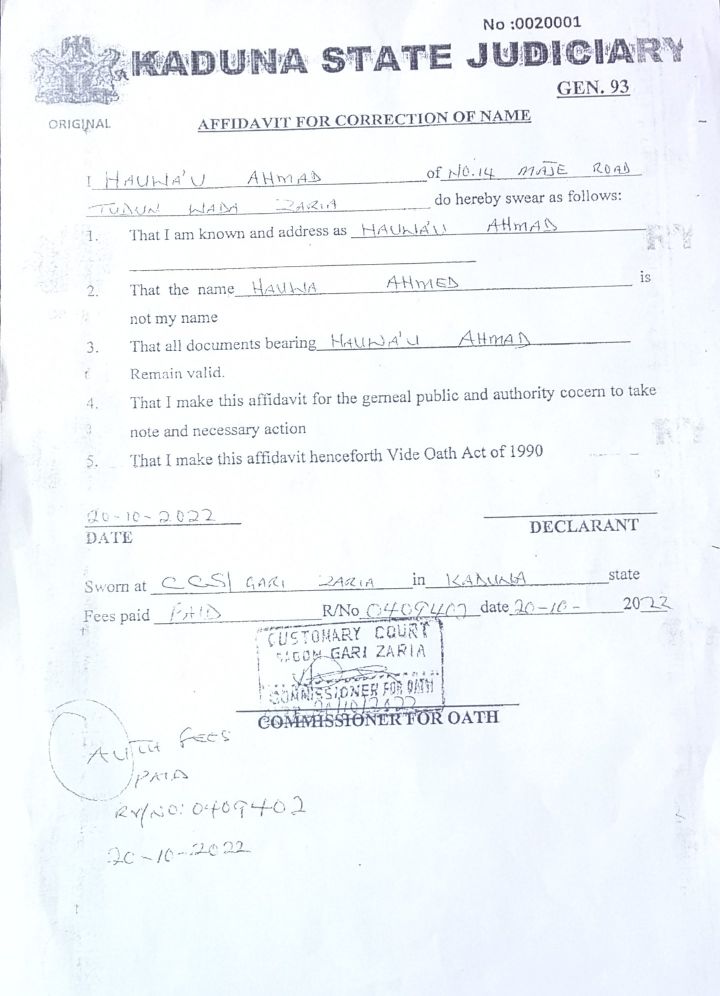 No :0020001
KADUNA STATE JUDICIARY
GEN. 93
ORIGINAL
AFFIDAVIT FOR CORRECTION OF NAME
I HAUWA'U AHMAD of NO.14 MAJE ROAD
TUDUN WADA ZARIA do hereby swear as follows:
1. That I am known and address as HAUWA'U AHMAD
2. That the name HAUWA AHMED is
not my name
3. That all documents bearing HAUWA'U AHMAD
Remain valid.
4. That I make this affidavit for the gerneal public and authority cocern to take
note and necessary action
5. That I make this affidavit henceforth Vide Oath Act of 1990
20-10-2022
DATE
DECLARANT
Sworn at CCS/GARI ZARIA in KADUNA state
Fees paid PAID R/No 0409402 date 20-10- 2022
CUSTOMARY COURT
SABON GARI ZARIA
COMMISSIONER FOR OATH
COMMISSIONER FOR OATH
AUTH FEES
PAID
RV/NO: 0409402
20-10-2022